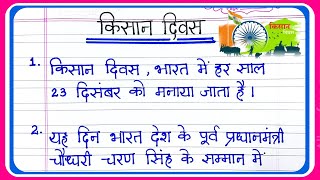 किसान दिवस
1. किसान दिवस, भारत में हर साल
23 दिसंबर को मनाया जाता है।
2. यह दिन भारत देश के पूर्व प्रधानमंत्री
चौधरी चरण सिंह के सम्मान में